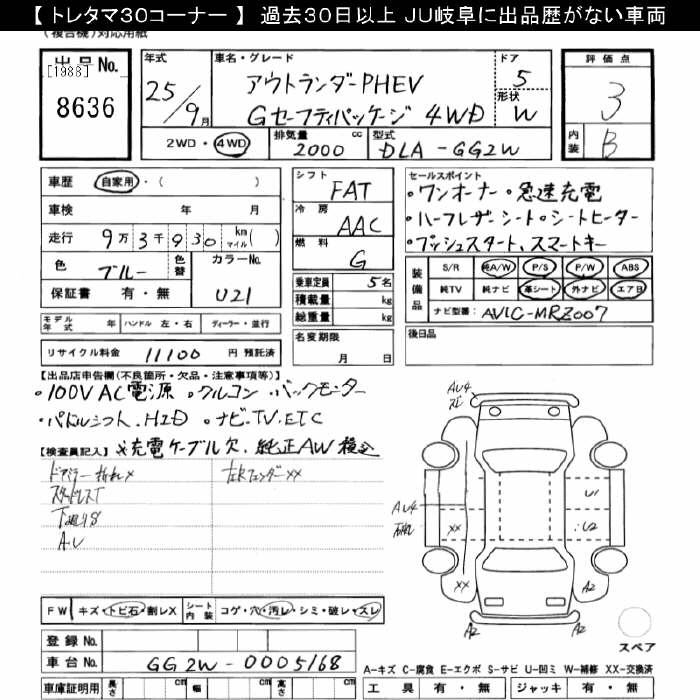 【 トレタマ30コーナー 】 過去30日以上 JU岐阜に出品歴がない車両
(複合機)対応用紙
出品No.
[1988]
8636
年式
25/9月
車名・グレード
アウトランダーPHEV
Gセーフティパッケージ 4WD
ドア
5
形状
W
評価点
3
内装
B
2WD・4WD
排気量
2000 cc
型式
DLA-GG2W
車歴 自家用・( )
車検 年 月
走行 9万3千930 km マイル( )
色 ブルー
色替
カラーNo.
U21
保証書 有・無
シフト
FAT
冷房
AAC
燃料
G
乗車定員 5名
積載量 kg
総重量 kg
セールスポイント
・ワンオーナー・急速充電
・ハーフレザーシート・シートヒーター
・プッシュスタート、スマートキー
装備品
S/R 純A/W P/S P/W ABS
純TV 純ナビ 革シート 外ナビ エアB
ナビ型番: AVIC-MRZ007
モデル年式 年 ハンドル 左・右 ディーラー・並行
名変期限
月 日
後日品
リサイクル料金 11100 円 預託済
【出品店申告欄(不良箇所・欠品・注意事項等)】
・100V AC電源 ・クルコン ・バックモニター
・パドルシフト、HID ・ナビ、TV、ETC
【検査員記入】 ※充電ケーブル欠、純正AW積込
ドアミラー折れ×
スタッドレスT
下廻りS
A・U
左Rフェンダー××
AU4
AU4
××
××
U1
U2
A2
A2
A2
FW キズ・トビ石・割レX
シート内装 コゲ・穴・汚レ・シミ・破レ・スレ
登録No.
車台No. GG2W-0005168
車庫証明用 長さ cm 幅 cm 高さ cm
スペア
A-キズ C-腐食 E-エクボ S-サビ U-凹ミ W-補修 XX-交換済
工具 有・無 ジャッキ 有・無